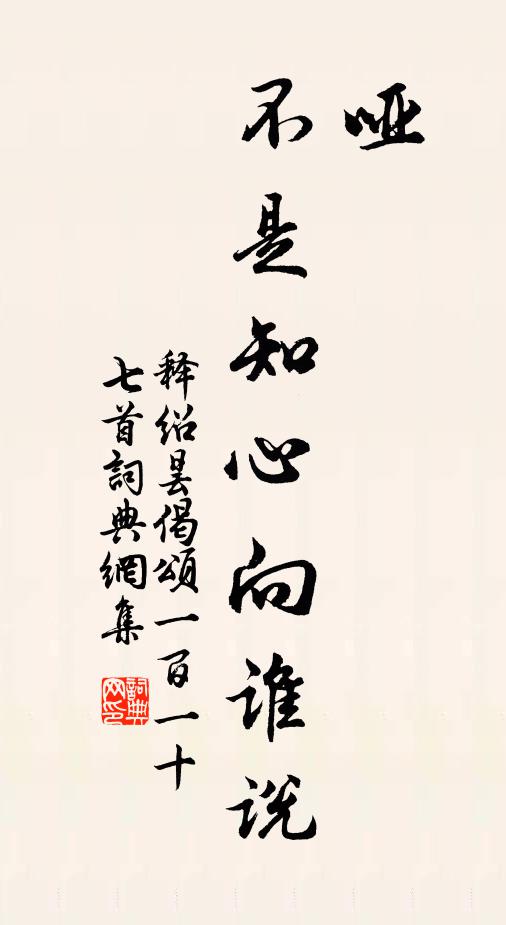 哑
不是知心向谁说
释绍昙偈颂一百一十
七首詞典網集
詞典网印